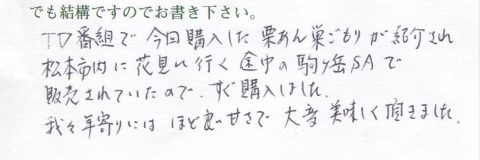 でも結構ですのでお書き下さい。
TV番組で今回購入した栗あん巣ごもりが紹介され
松本市内に花見に行く途中の駒ヶ岳SAで
販売されていたので、すぐ購入しました。
我々年寄りにはほど良い甘さで大変美味しく頂きました。